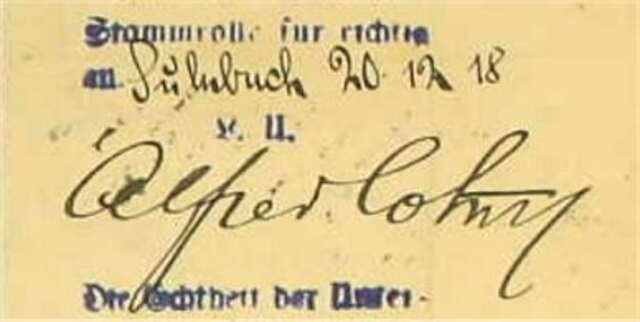 Stammrolle für richtig
an. 20 12 18
v. U.
Alfred
Die Echtheit der Unter-